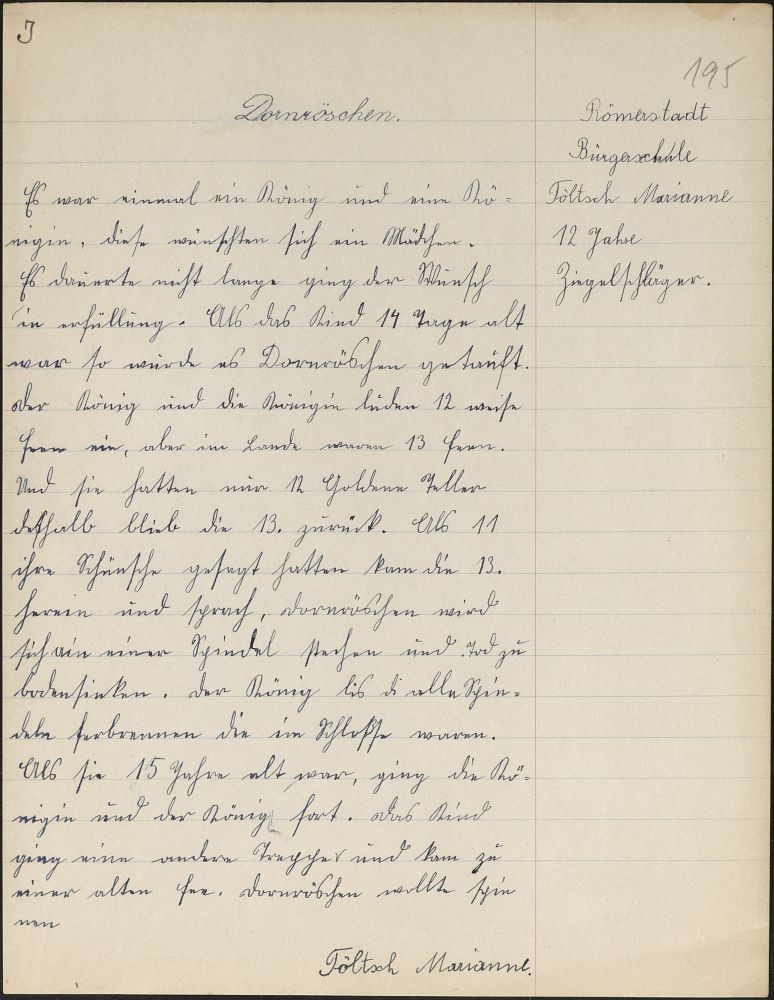 J
195
Dornröschen.
Römerstadt
Bürgerschule
Es war einmal ein König und eine Kö=
nigin, diese wünschten sich ein Mädchen.
Es dauerte nicht lange ging der Wunsch
in erfüllung. Als das Kind 14 Tage alt
war so wurde es Dornröschen getauft.
Der König und die Königin luden 12 weise
feen ein, aber im Lande waren 13 feen.
Und sie hatten nur 12 Goldene Teller
deßhalb blieb die 13. zurück. Als 11
ihre Schünsche gesagt hatten kam die 13.
herein und sprach, Dornröschen wird
sich ain einer Spindel stechen und Tod zu
bodensinken. Der König lis di alle Spin=
deln ferbrennen die im Schloße waren.
Als sie 15 Jahre alt war, ging die Kö=
nigin und der König fort. Das Kind
ging eine andere Treppe und kam zu
einer alten fee. Dornröschen wollte spin
nen
Töltsch Marianne.
Töltsch Marianne
12 Jahre
Ziegelschläger.